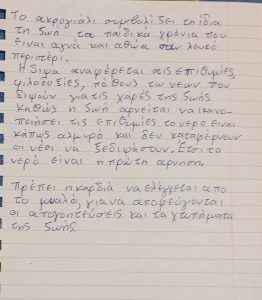 Το ακρογιάλι συμβολίζει την ίδια
τη ζωή τα παιδικά χρόνια που
είναι αγνά και αθώα σαν λευκό
περιστέρι.
Η δίψα αναφέρεται στις επιθυμίες,
φιλοδοξίες, πόθους των νέων που
διψούν για τις χαρές της ζωής
καθώς η ζωή αρνείται να ικανο-
ποιήσει τις επιθυμίες το νερό είναι
κάπως αλμυρό και δεν καταφέρνουν
οι νέοι να ξεδιψάσουν. Έτσι το
νερό είναι η πρώτη άρνηση.
Πρέπει η καρδιά να ελέγχεται από
το μυαλό, για να αποφεύγονται
οι απογοητεύσεις και τα χτυπήματα
της ζωής.